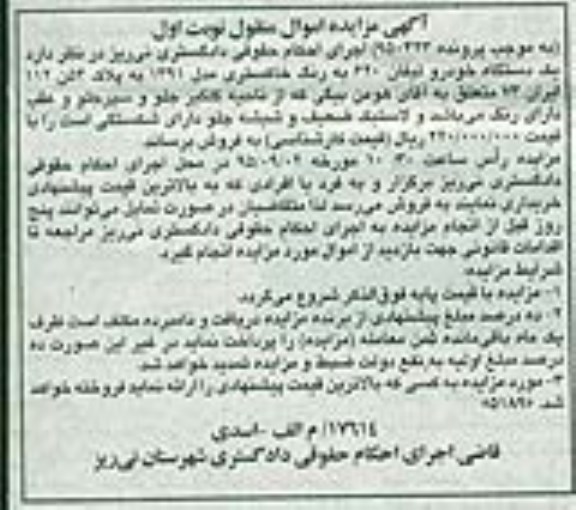 آگهی مزایده اموال منقول نوبت اول
(به موجب پرونده ۹۵۰۳۲۳) اجرای احکام حقوقی دادگستری نی‌ریز در نظر دارد
یک دستگاه خودرو لیفان ۶۲۰ به رنگ خاکستری مدل ۱۳۹۱ به پلاک ۱۱۲
ایران ۷۳ متعلق به آقای هومن بیگی که از ناحیه گلگیر جلو و سپر جلو و عقب
دارای رنگ می‌باشد و لاستیک ضعیف و شیشه جلو دارای شکستگی است را با
قیمت ۲۲۰/۰۰۰/۰۰۰ ریال (قیمت کارشناسی) به فروش برساند.
مزایده رأس ساعت ۱۰:۳۰ مورخه ۹۵/۰۹/۰۲ در محل اجرای احکام حقوقی
دادگستری نی‌ریز برگزار و به فرد یا افرادی که به بالاترین قیمت پیشنهادی
خریداری نمایند به فروش می‌رسد لذا متقاضیان در صورت تمایل می‌توانند پنج
روز قبل از انجام مزایده به اجرای احکام حقوقی دادگستری نی‌ریز مراجعه تا
اقدامات قانونی جهت بازدید از اموال مورد مزایده انجام گیرد.
شرایط مزایده:
۱- مزایده با قیمت پایه فوق‌الذکر شروع می‌گردد.
۲- ده درصد مبلغ پیشنهادی از برنده مزایده دریافت و نامبرده مکلف است ظرف
یک ماه باقی‌مانده ثمن معامله (مزایده) را پرداخت نماید در غیر این صورت ده
درصد مبلغ اولیه به نفع دولت ضبط و مزایده تجدید خواهد شد.
۳- مورد مزایده به کسی که بالاترین قیمت پیشنهادی را ارائه نماید فروخته خواهد
شد. ۹۵۱۸۹۶
۱۷۶۱٤/ م الف -اسدی
قاضی اجرای احکام حقوقی دادگستری شهرستان نی‌ریز